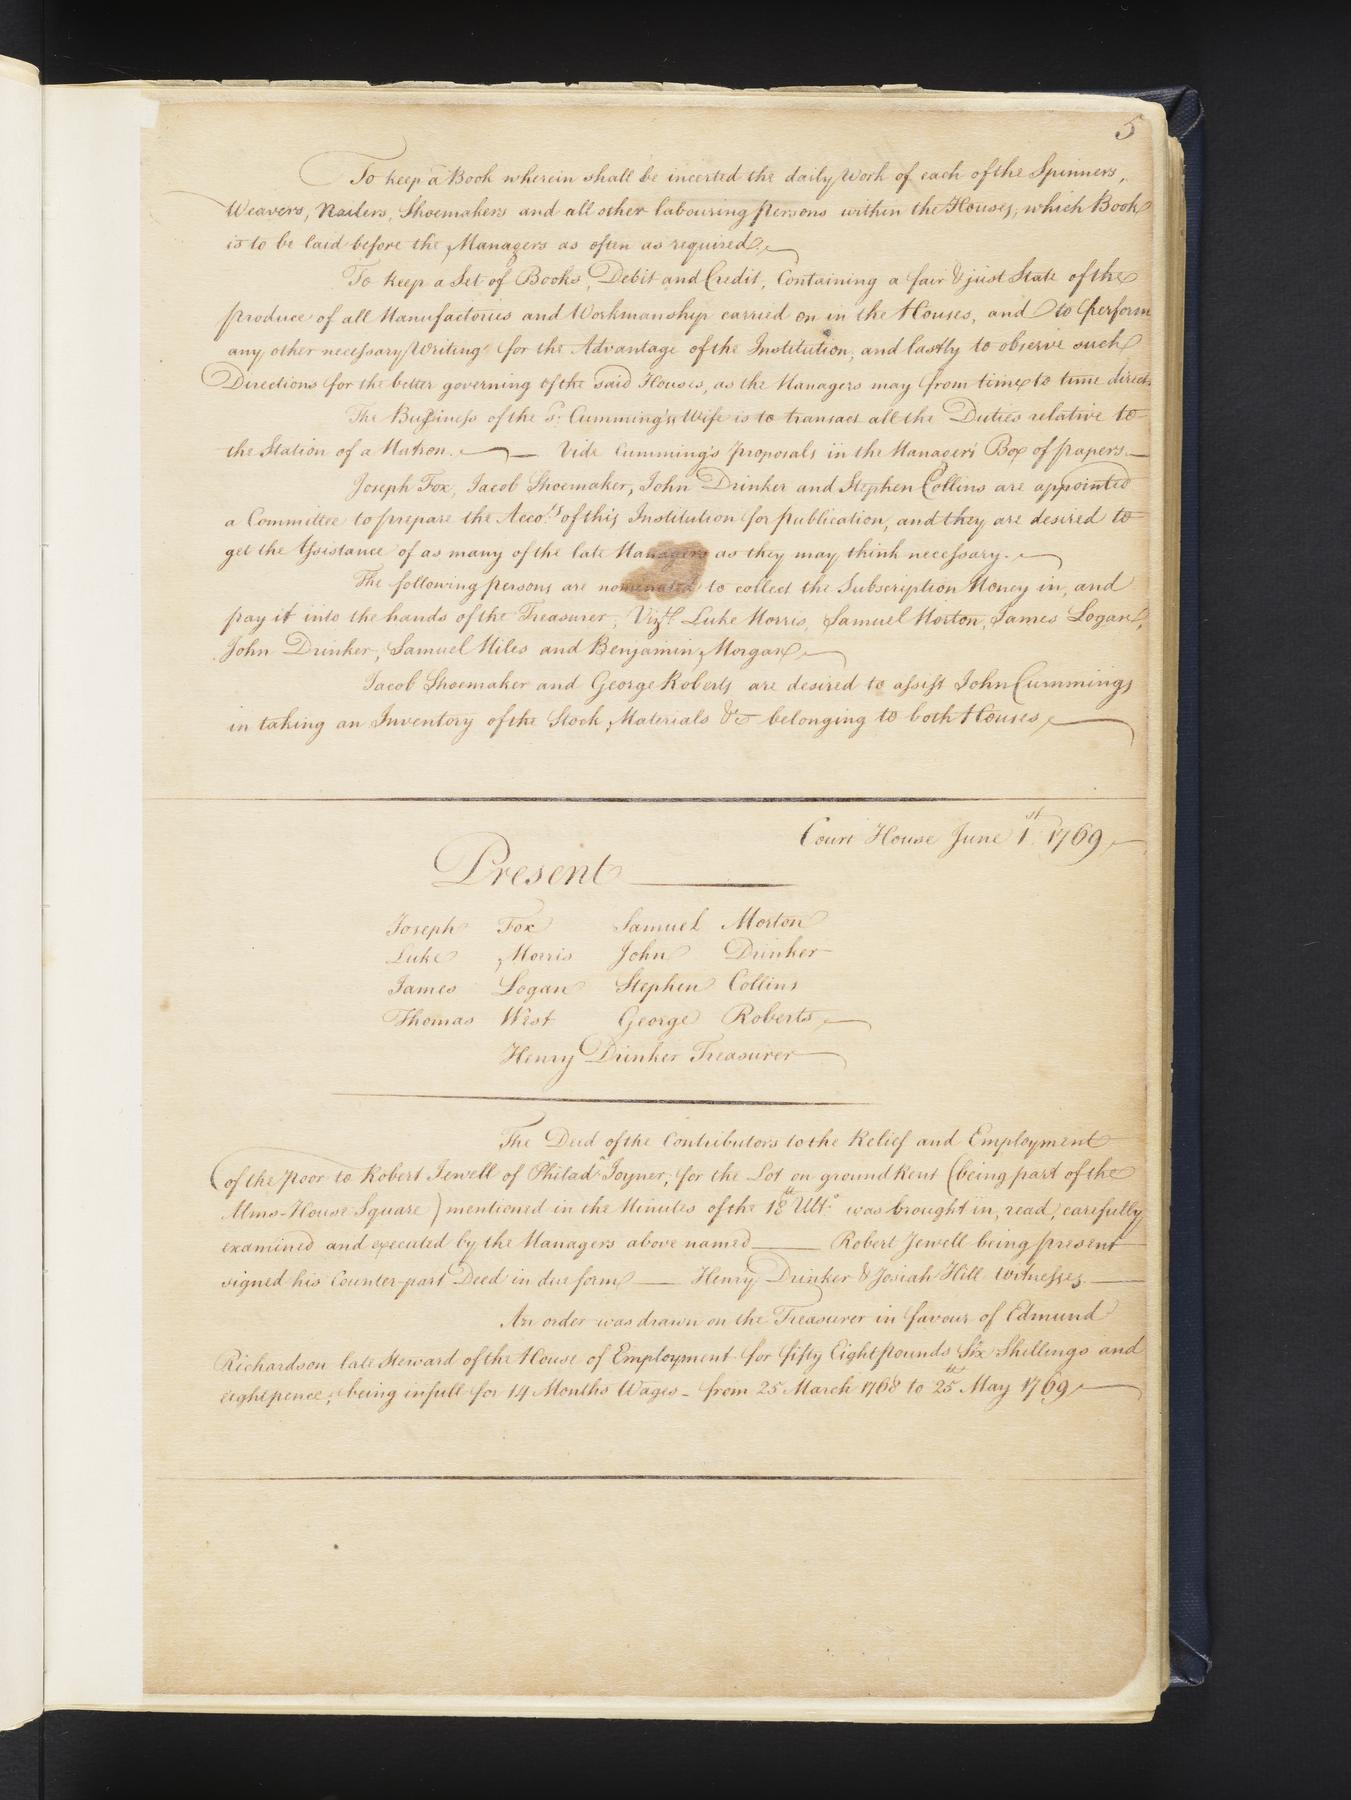 5
To keep a Book wherein shall be incerted the daily Work of each of the Spinners,
Weavers, Nailers, Shoemakers and all other labouring persons within the Houses, which Book
is to be laid before the Managers as often as required.
To keep a Set of Books, Debit and Credit, Containing a fair & just State of the
produce of all Manufactories and Workmanship carried on in the Houses, and to perform
any other necessary Writing for the Advantage of the Institution, and lastly to observe such
Directions for the better governing of the said Houses, as the Managers may from time to time direct
The Business of the sd. Cumming's Wife is to transact all the Duties relative to
the Station of a Matron. — Vide Cumming's proposals in the Manager's Box of papers. —
Joseph Fox, Jacob Shoemaker, John Drinker and Stephen Collins are appointed
a Committee to prepare the Accots. of this Institution for publication, and they are desired to
get the Assistance of as many of the late Managers as they may think necessary.
The following persons are nominated to collect the Subscription Money in, and
pay it into the hands of the Treasurer, Vizt. Luke Morris, Samuel Morton, James Logan,
John Drinker, Samuel Miles and Benjamin Morgan
Jacob Shoemaker and George Roberts are desired to assist John Cummings
in taking an Inventory of the Stock, Materials &c belonging to both Houses
Court House June 1st. 1769
Present
Joseph Fox Samuel Morton
Luke Morris John Drinker
James Logan Stephen Collins
Thomas West George Roberts
Henry Drinker Treasurer
The Deed of the Contributors to the Relief and Employment
of the Poor to Robert Jewell of Philada. Joyner, for the Lot on ground Rent (being part of the
Alms-House Square) mentioned in the Minutes of the 18th Ulto. was brought in, read, carefully
examined and executed by the Managers above named — Robert Jewell being present
signed his Counter-part Deed in due form — Henry Drinker & Josiah Hill Witnesses. —
An order was drawn on the Treasurer in favour of Edmund
Richardson late Steward of the House of Employment for fifty Eight pounds Six Shillings and
eight pence; being in full for 14 Months Wages - from 25 March 1768 to 25th May 1769